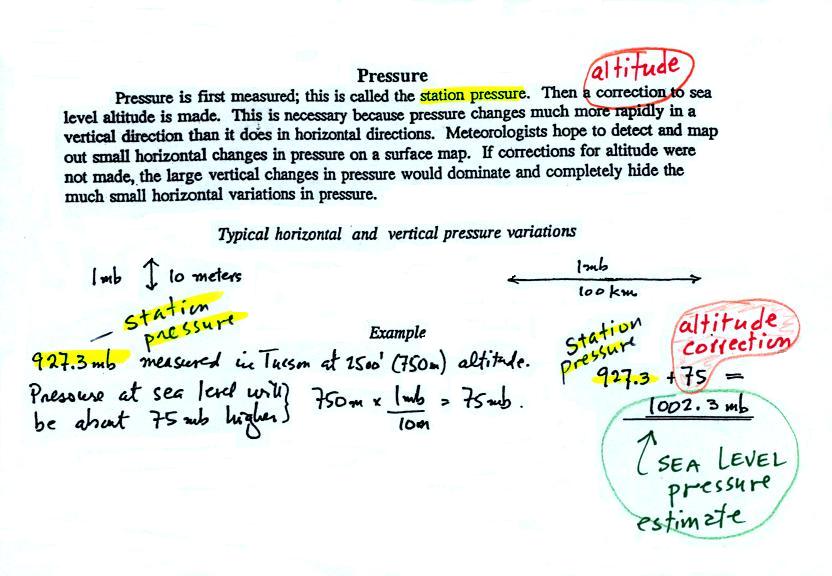 Pressure
altitude
Pressure is first measured; this is called the station pressure. Then a correction to sea
level altitude is made. This is necessary because pressure changes much more rapidly in a
vertical direction than it does in horizontal directions. Meteorologists hope to detect and map
out small horizontal changes in pressure on a surface map. If corrections for altitude were
not made, the large vertical changes in pressure would dominate and completely hide the
much small horizontal variations in pressure.
Typical horizontal and vertical pressure variations
1mb 10 meters
1mb
100 km
station
pressure
Example
927.3 mb measured in Tucson at 2500' (750m) altitude.
Pressure at sea level will
be about 75 mb higher
750m x 1mb = 75mb.
10m
Station
pressure
altitude
correction
927.3 + 75 =
1002.3 mb
SEA LEVEL
pressure
estimate